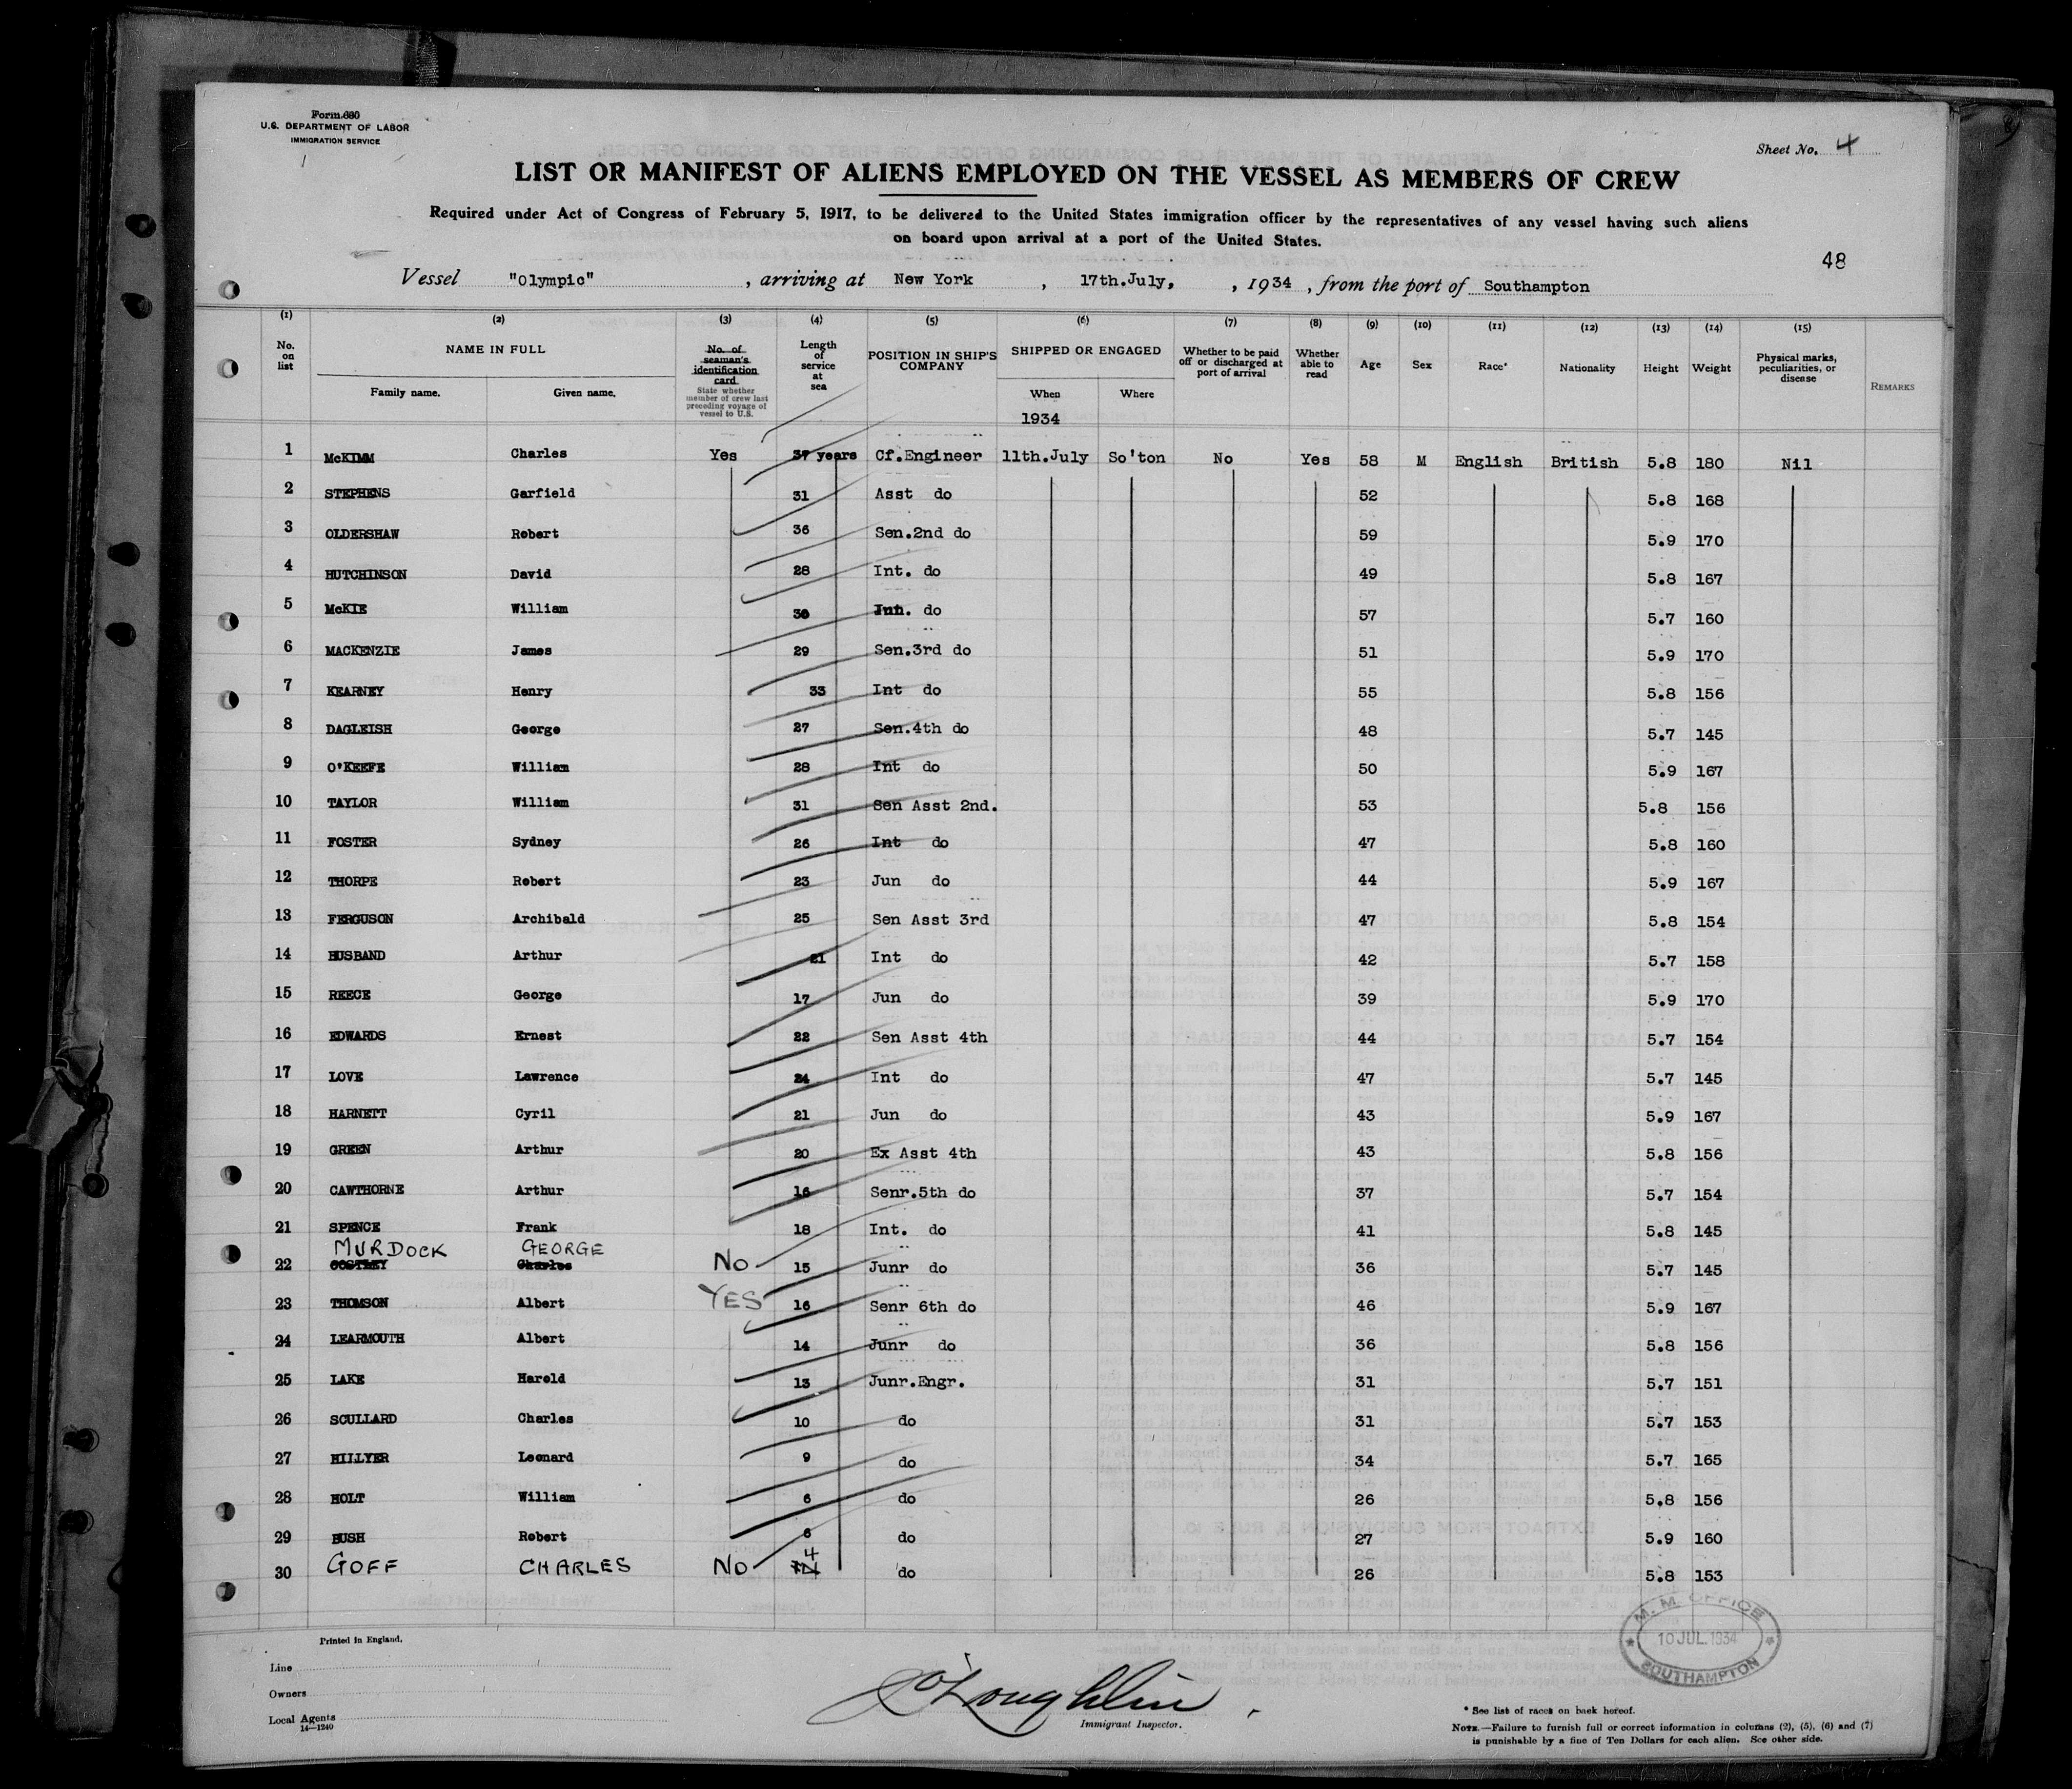 Form 680
U.S. DEPARTMENT OF LABOR
IMMIGRATION SERVICE
Sheet No. 4
LIST OR MANIFEST OF ALIENS EMPLOYED ON THE VESSEL AS MEMBERS OF CREW
Required under Act of Congress of February 5, 1917, to be delivered to the United States immigration officer by the representatives of any vessel having such aliens
on board upon arrival at a port of the United States.
48
Vessel "Olympic", arriving at New York, 17th.July, , 1934, from the port of Southampton
(1) (2) (3) (4) (5) (6) (7) (8) (9) (10) (11) (12) (13) (14) (15)
No. on list
NAME IN FULL
Family name. Given name.
No. of seaman's identification card
State whether member of crew last preceding voyage of vessel to U.S.
Length of service at sea
POSITION IN SHIP'S COMPANY
SHIPPED OR ENGAGED
When Where
1934
Whether to be paid off or discharged at port of arrival
Whether able to read
Age
Sex
Race*
Nationality
Height
Weight
Physical marks, peculiarities, or disease
REMARKS
1 McKIMM Charles Yes 37 years Cf.Engineer 11th.July So'ton No Yes 58 M English British 5.8 180 Nil
2 STEPHENS Garfield 31 Asst do 52 5.8 168
3 OLDERSHAW Robert 36 Sen.2nd do 59 5.9 170
4 HUTCHINSON David 28 Int. do 49 5.8 167
5 McKIE William 30 Jun. do 57 5.7 160
6 MACKENZIE James 29 Sen.3rd do 51 5.9 170
7 KEARNEY Henry 33 Int do 55 5.8 156
8 DAGLEISH George 27 Sen.4th do 48 5.7 145
9 O'KEEFE William 28 Int do 50 5.9 167
10 TAYLOR William 31 Sen Asst 2nd. 53 5.8 156
11 FOSTER Sydney 26 Int do 47 5.8 160
12 THORPE Robert 23 Jun do 44 5.9 167
13 FERGUSON Archibald 25 Sen Asst 3rd 47 5.8 154
14 HUSBAND Arthur 21 Int do 42 5.7 158
15 REECE George 17 Jun do 39 5.9 170
16 EDWARDS Ernest 22 Sen Asst 4th 44 5.7 154
17 LOVE Lawrence 24 Int do 47 5.7 145
18 HARNETT Cyril 21 Jun do 43 5.9 167
19 GREEN Arthur 20 Ex Asst 4th 43 5.8 156
20 CAWTHORNE Arthur 16 Senr.5th do 37 5.7 154
21 SPENCE Frank 18 Int. do 41 5.8 145
MURDOCK GEORGE
22 COSTLEY Charles No 15 Junr do 36 5.7 145
23 THOMSON Albert YES 16 Senr 6th do 46 5.9 167
24 LEARMOUTH Albert 14 Junr do 36 5.8 156
25 LAKE Harold 13 Junr.Engr. 31 5.7 151
26 SCULLARD Charles 10 do 31 5.7 153
27 HILLYER Leonard 9 do 34 5.7 165
28 HOLT William 6 do 26 5.8 156
29 BUSH Robert 6 do 27 5.9 160
30 GOFF CHARLES No 4 do 26 5.8 153
M. M. OFFICE
10 JUL. 1934
SOUTHAMPTON
Printed in England.
Line
Owners
Local Agents
14—1240
O'Loughlin
Immigrant Inspector.
* See list of races on back hereof.
NOTE.—Failure to furnish full or correct information in columns (2), (5), (6) and (7)
is punishable by a fine of Ten Dollars for each alien. See other side.